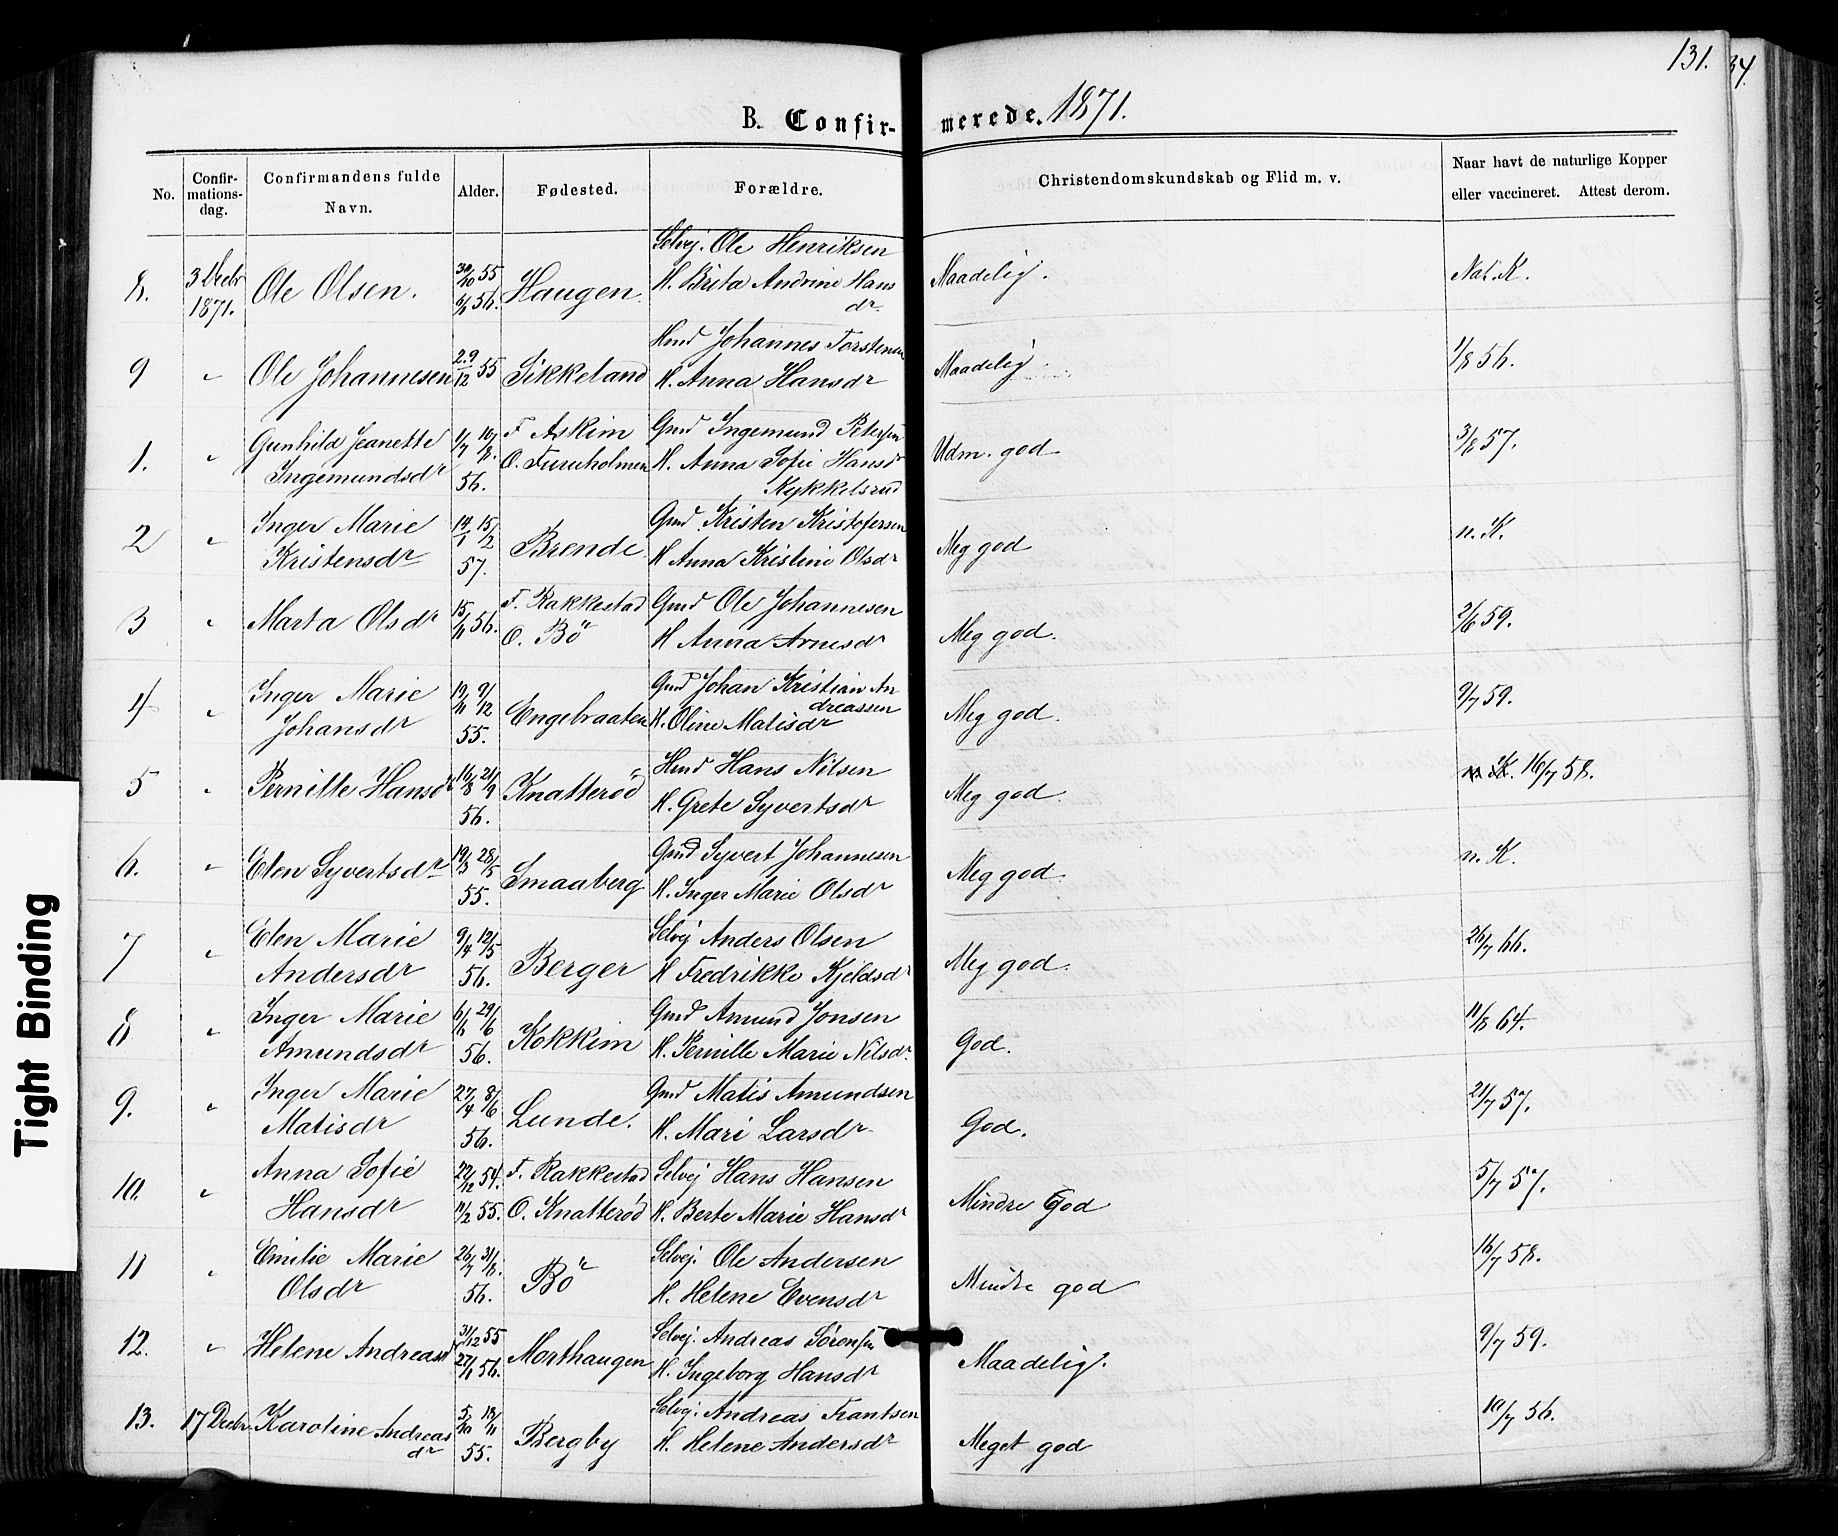 131.
34.
B. Confir-merede. 1871.
No.
Confir-
mations-
dag.
Confirmandens fulde
Navn.
Alder.
Fødested.
Forældre.
Christendomskundskab og Flid m. v.
Naar havt de naturlige Kopper
eller vaccineret. Attest derom.
8. 3 Decbr 1871. Ole Olsen. 30/10 55 6/1 56. Haugen. Selvej. Ole Henriksen
H. Brita Andrine Hans
dr. Maadelig. Nat. K.
9 " Ole Johannesen 29/12 55 Sikkeland Hmd Johannes Torstensen
H. Anna Hansdr Maadelig. 1/8 56.
1. " Gunhild Jeanette Ingemundsdr 1/7 10/8 56. F. Askim
O. Fureholmen Gmd Ingemund Petersen
H. Anna Sofie Hansdr
Kykkelsrud Udm. god 3/8 57.
2 " Inger Marie Kristensdr 14/1 15/2 57. Brende Gmd Kristen Kristofersen
H Anna Kristine Olsdr Meg god n. K.
3 " Marta Olsdr 15/11 56. F. Rakkestad
O. Bö Gmd Ole Johannesen
H Anna Arnesdr Meg god. 2/6 59.
4 " Inger Marie Johansdr 19/11 9/12 55. Engebraaten Gmd Johan Kristian An
dreassen
H. Oline Matisdr Meg god. 9/7 59.
5 " Pernille Hansdr 16/8 21/9 56. Knatterød Hmd Hans Nilsen
H. Grete Syvertsdr Meg god. n. K. 16/7 58.
6. " Elen Syvertsdr 19/3 28/5 55. Smaaberg Gmd Syvert Johannesen
H. Inger Marie Olsdr Meg god. n. K.
7 " Elen Marie Andersdr 9/4 12/5 56. Berger Selvej Anders Olsen
H Fredrikke Kjeldsdr Meg god. 26/7 66.
8 " Inger Marie Amundsdr 29/6 56. Kokkim Gmd Amund Jonsen
H. Pernille Marie Nilsdr. God. 11/8 64.
9. " Inger Marie Matisdr 27/4 8/6 56. Lunde. Gmd Matis Amundsen
H. Mari Larsdr God. 21/7 57.
10. " Anna Sofie Hansdr 22/12 54. 11/2 55. F. Rakkestad
O. Knatterød Selvej Hans Hansen
H. Berte Marie Hansdr Mindre God 5/7 57.
11 " Emilie Marie Olsdr 26/7 31/8 56. Bö Selvej. Ole Andersen
H. Helene Evensdr Mindre god 16/7 58.
12. " Helene Andreasdr 31/12 55 27/1 56. Morthaugen Selvej. Andreas Sörensen
H. Ingeborg Hansdr Maadelig. 9/7 59.
13. 17 Decbr. Karoline Andreas
dr 5/10 18/11 55. Bergby Selvej. Andreas Frantsen
H. Helene Andersdr Meget god 10/7 56.
Tight Binding